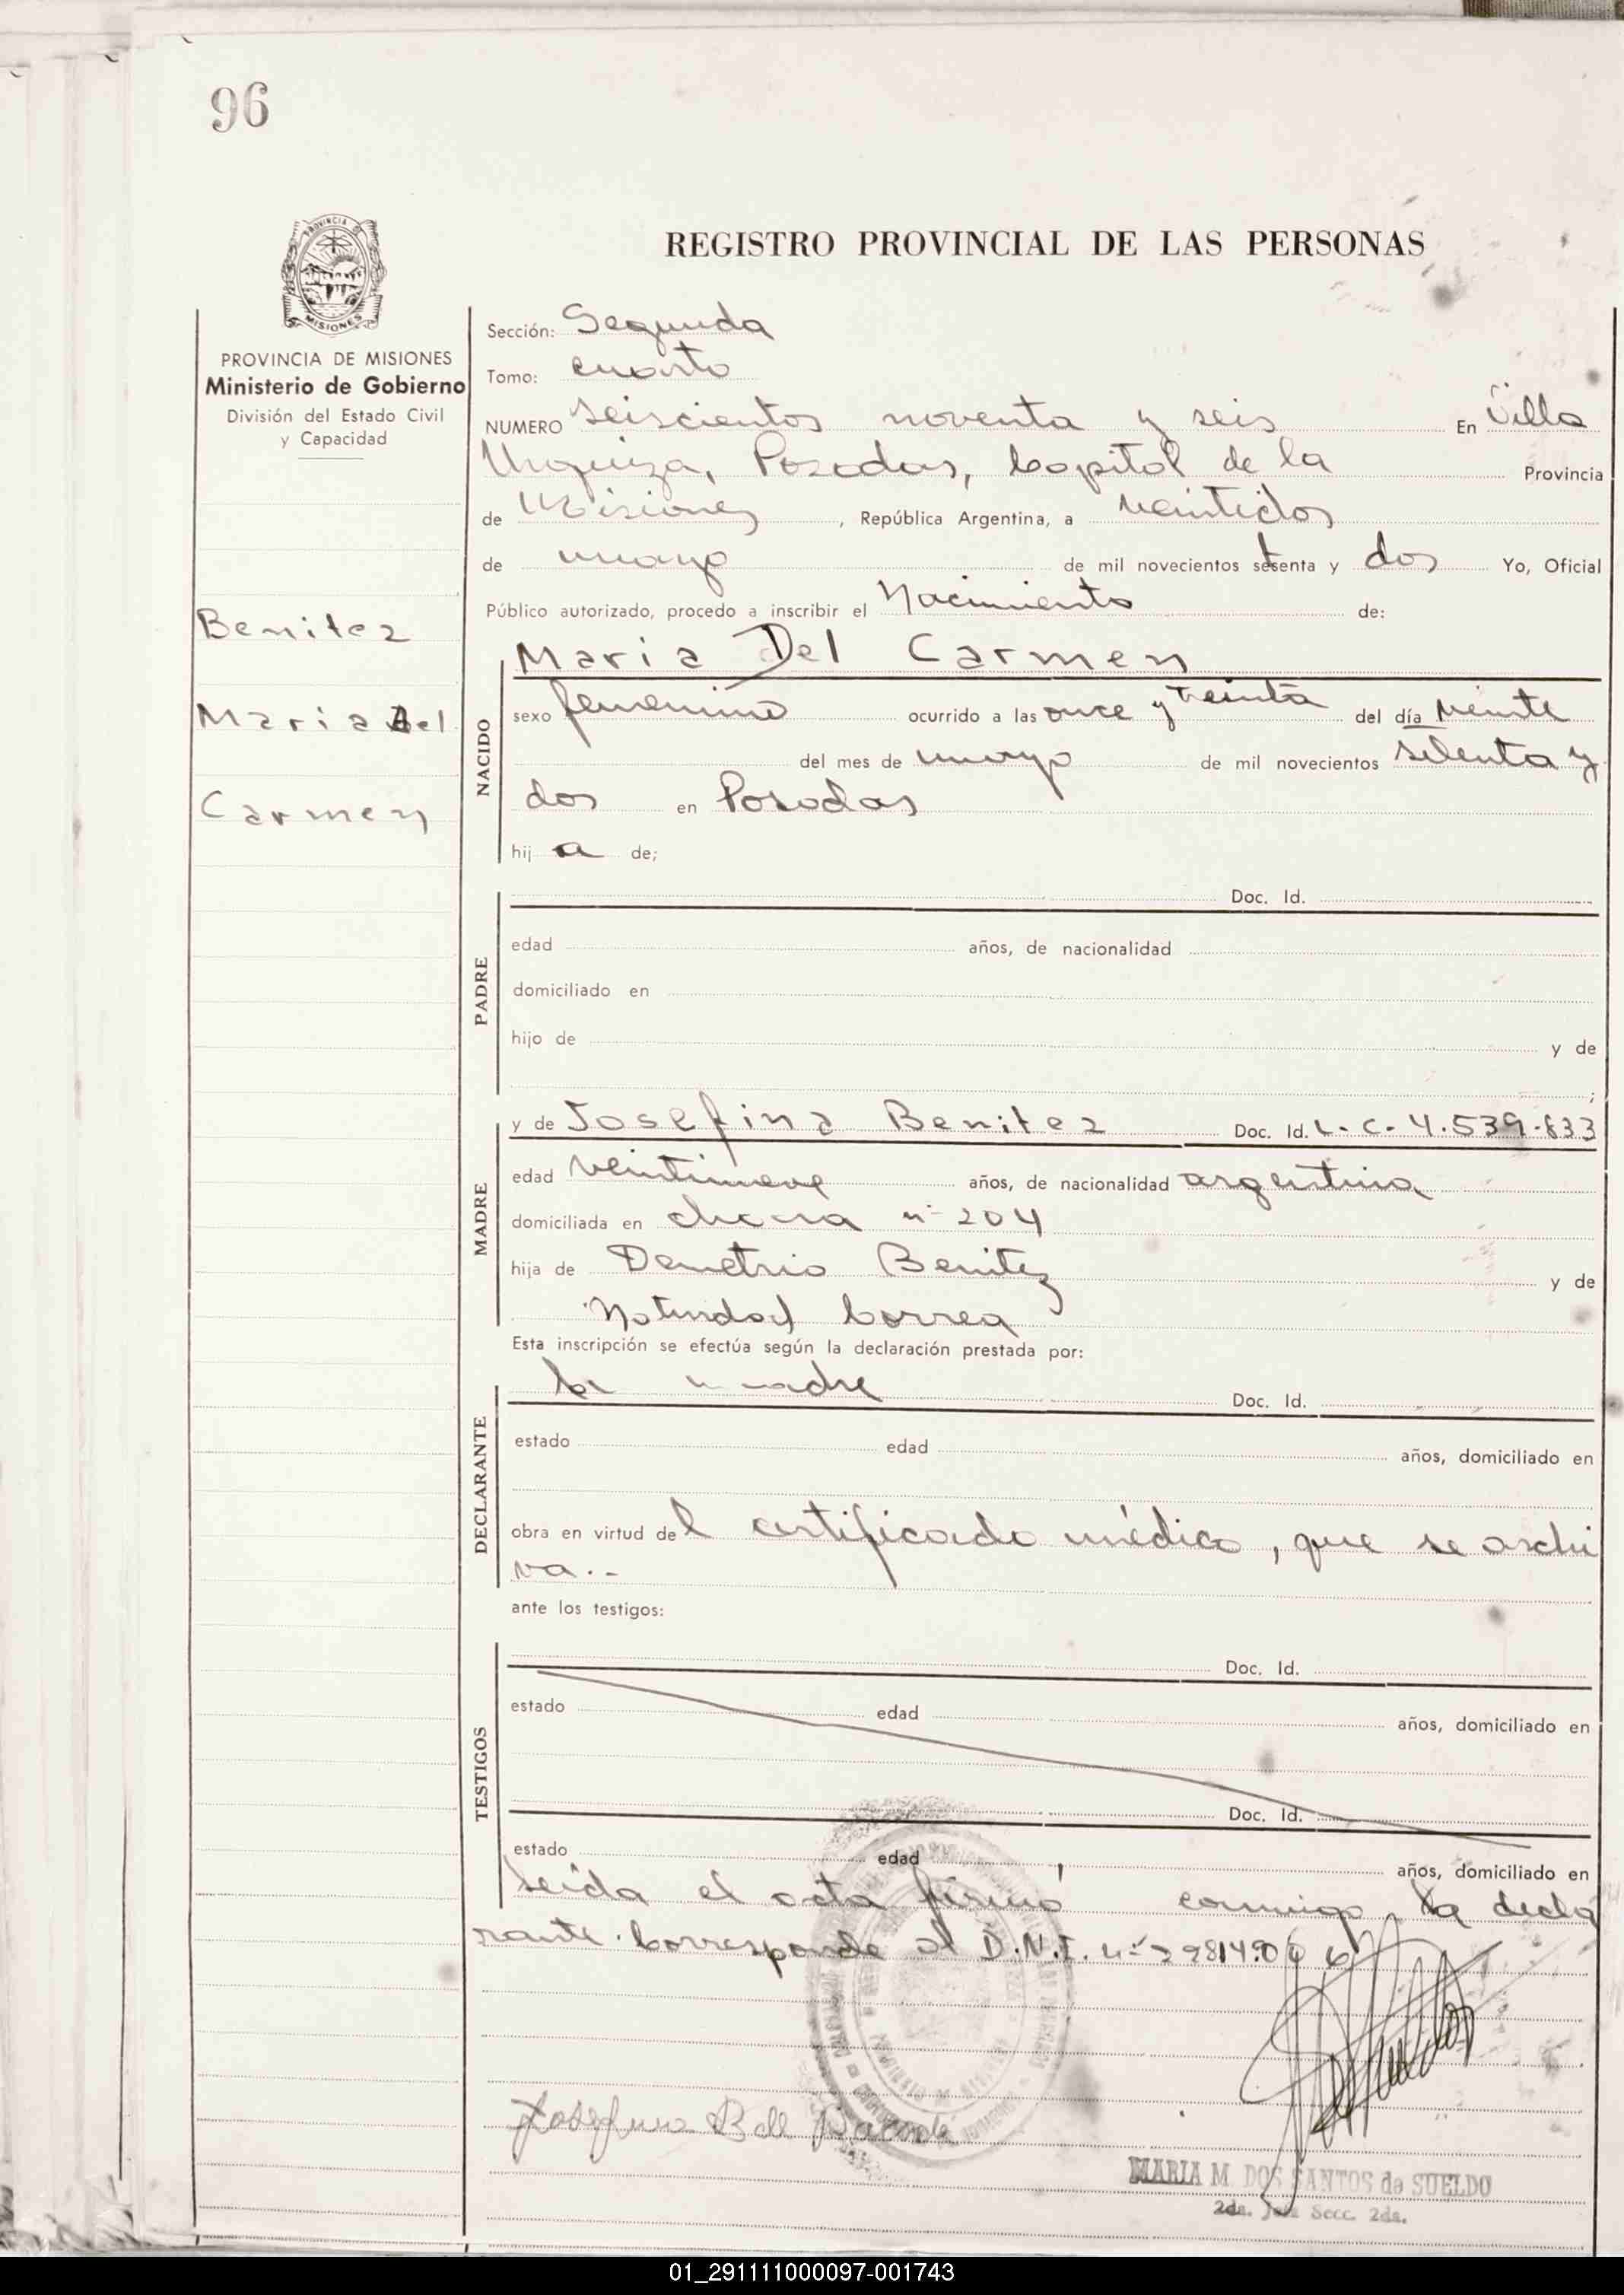 96
REGISTRO PROVINCIAL DE LAS PERSONAS
PROVINCIA DE MISIONES
MISIONES
PROVINCIA DE MISIONES
Ministerio de Gobierno
División del Estado Civil
y Capacidad
Benitez
Maria Del
Carmen
Sección: Segunda
Tomo: cuarto
NUMERO seiscientos noventa y seis En Villa
Urquiza, Posadas, Capital de la Provincia
de Misiones, República Argentina, a veintidos
de mayo de mil novecientos setenta y dos Yo, Oficial
Público autorizado, procedo a inscribir el Nacimiento de:
NACIDO
Maria Del Carmen
sexo femenino ocurrido a las once y treinta del día veinte
del mes de mayo de mil novecientos setenta y
dos en Posadas
hij a de;
PADRE
Doc. Id.
edad años, de nacionalidad
domiciliado en
hijo de y de
;
MADRE
y de Josefina Benitez Doc. Id. L. C. 4.539.833
edad veintinueve años, de nacionalidad argentina
domiciliada en chacra nº 204
hija de Demetrio Benitez y de
Natividad Correa
Esta inscripción se efectúa según la declaración prestada por:
DECLARANTE
la madre Doc. Id.
estado edad años, domiciliado en
obra en virtud del certificado médico, que se archi
va.-
ante los testigos:
TESTIGOS
Doc. Id.
estado edad años, domiciliado en
Doc. Id.
estado edad años, domiciliado en
Leída el acta firmó conmigo la decla
rante. Corresponde al D.N.I. nº
MARIA M. DOS SANTOS de SUELDO
2da. Jefe Secc. 2da.
01_291111000097-001743